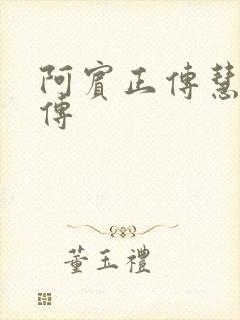 阿賓正傳慧
傳
董玉禮